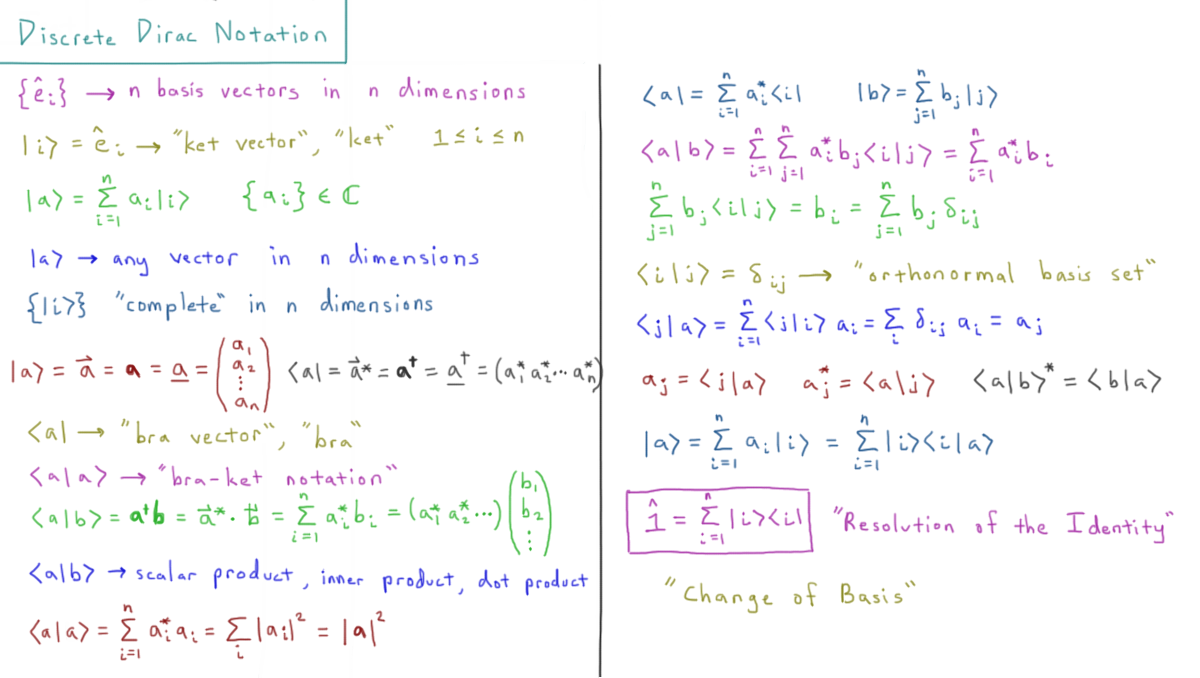 Discrete Dirac Notation
{ê_i} → n basis vectors in n dimensions
|i⟩ = ê_i → "ket vector", "ket" 1 ≤ i ≤ n
|a⟩ = Σ_{i=1}^{n} a_i|i⟩ {a_i} ∈ ℂ
|a⟩ → any vector in n dimensions
{|i⟩} "complete" in n dimensions
|a⟩ = a⃗ = 𝐚 = a̲ = (a_1 a_2 ⋮ a_n) ⟨a| = a⃗* = 𝐚† = a̲† = (a_1* a_2* ⋯ a_n*)
⟨a| → "bra vector", "bra"
⟨a|a⟩ → "bra-ket notation"
⟨a|b⟩ = 𝐚†𝐛 = a⃗* · b⃗ = Σ_{i=1}^{n} a_i* b_i = (a_1* a_2* ⋯)(b_1 b_2 ⋮)
⟨a|b⟩ → scalar product, inner product, dot product
⟨a|a⟩ = Σ_{i=1}^{n} a_i* a_i = Σ_i |a_i|² = |𝐚|²
⟨a| = Σ_{i=1}^{n} a_i*⟨i| |b⟩ = Σ_{j=1}^{n} b_j|j⟩
⟨a|b⟩ = Σ_{i=1}^{n} Σ_{j=1}^{n} a_i* b_j⟨i|j⟩ = Σ_{i=1}^{n} a_i* b_i
Σ_{j=1}^{n} b_j⟨i|j⟩ = b_i = Σ_{j=1}^{n} b_j δ_{ij}
⟨i|j⟩ = δ_{ij} → "orthonormal basis set"
⟨j|a⟩ = Σ_{i=1}^{n} ⟨j|i⟩ a_i = Σ_i δ_{ij} a_i = a_j
a_j = ⟨j|a⟩ a_j* = ⟨a|j⟩ ⟨a|b⟩* = ⟨b|a⟩
|a⟩ = Σ_{i=1}^{n} a_i|i⟩ = Σ_{i=1}^{n} |i⟩⟨i|a⟩
1̂ = Σ_{i=1}^{n} |i⟩⟨i| "Resolution of the Identity"
"Change of Basis"